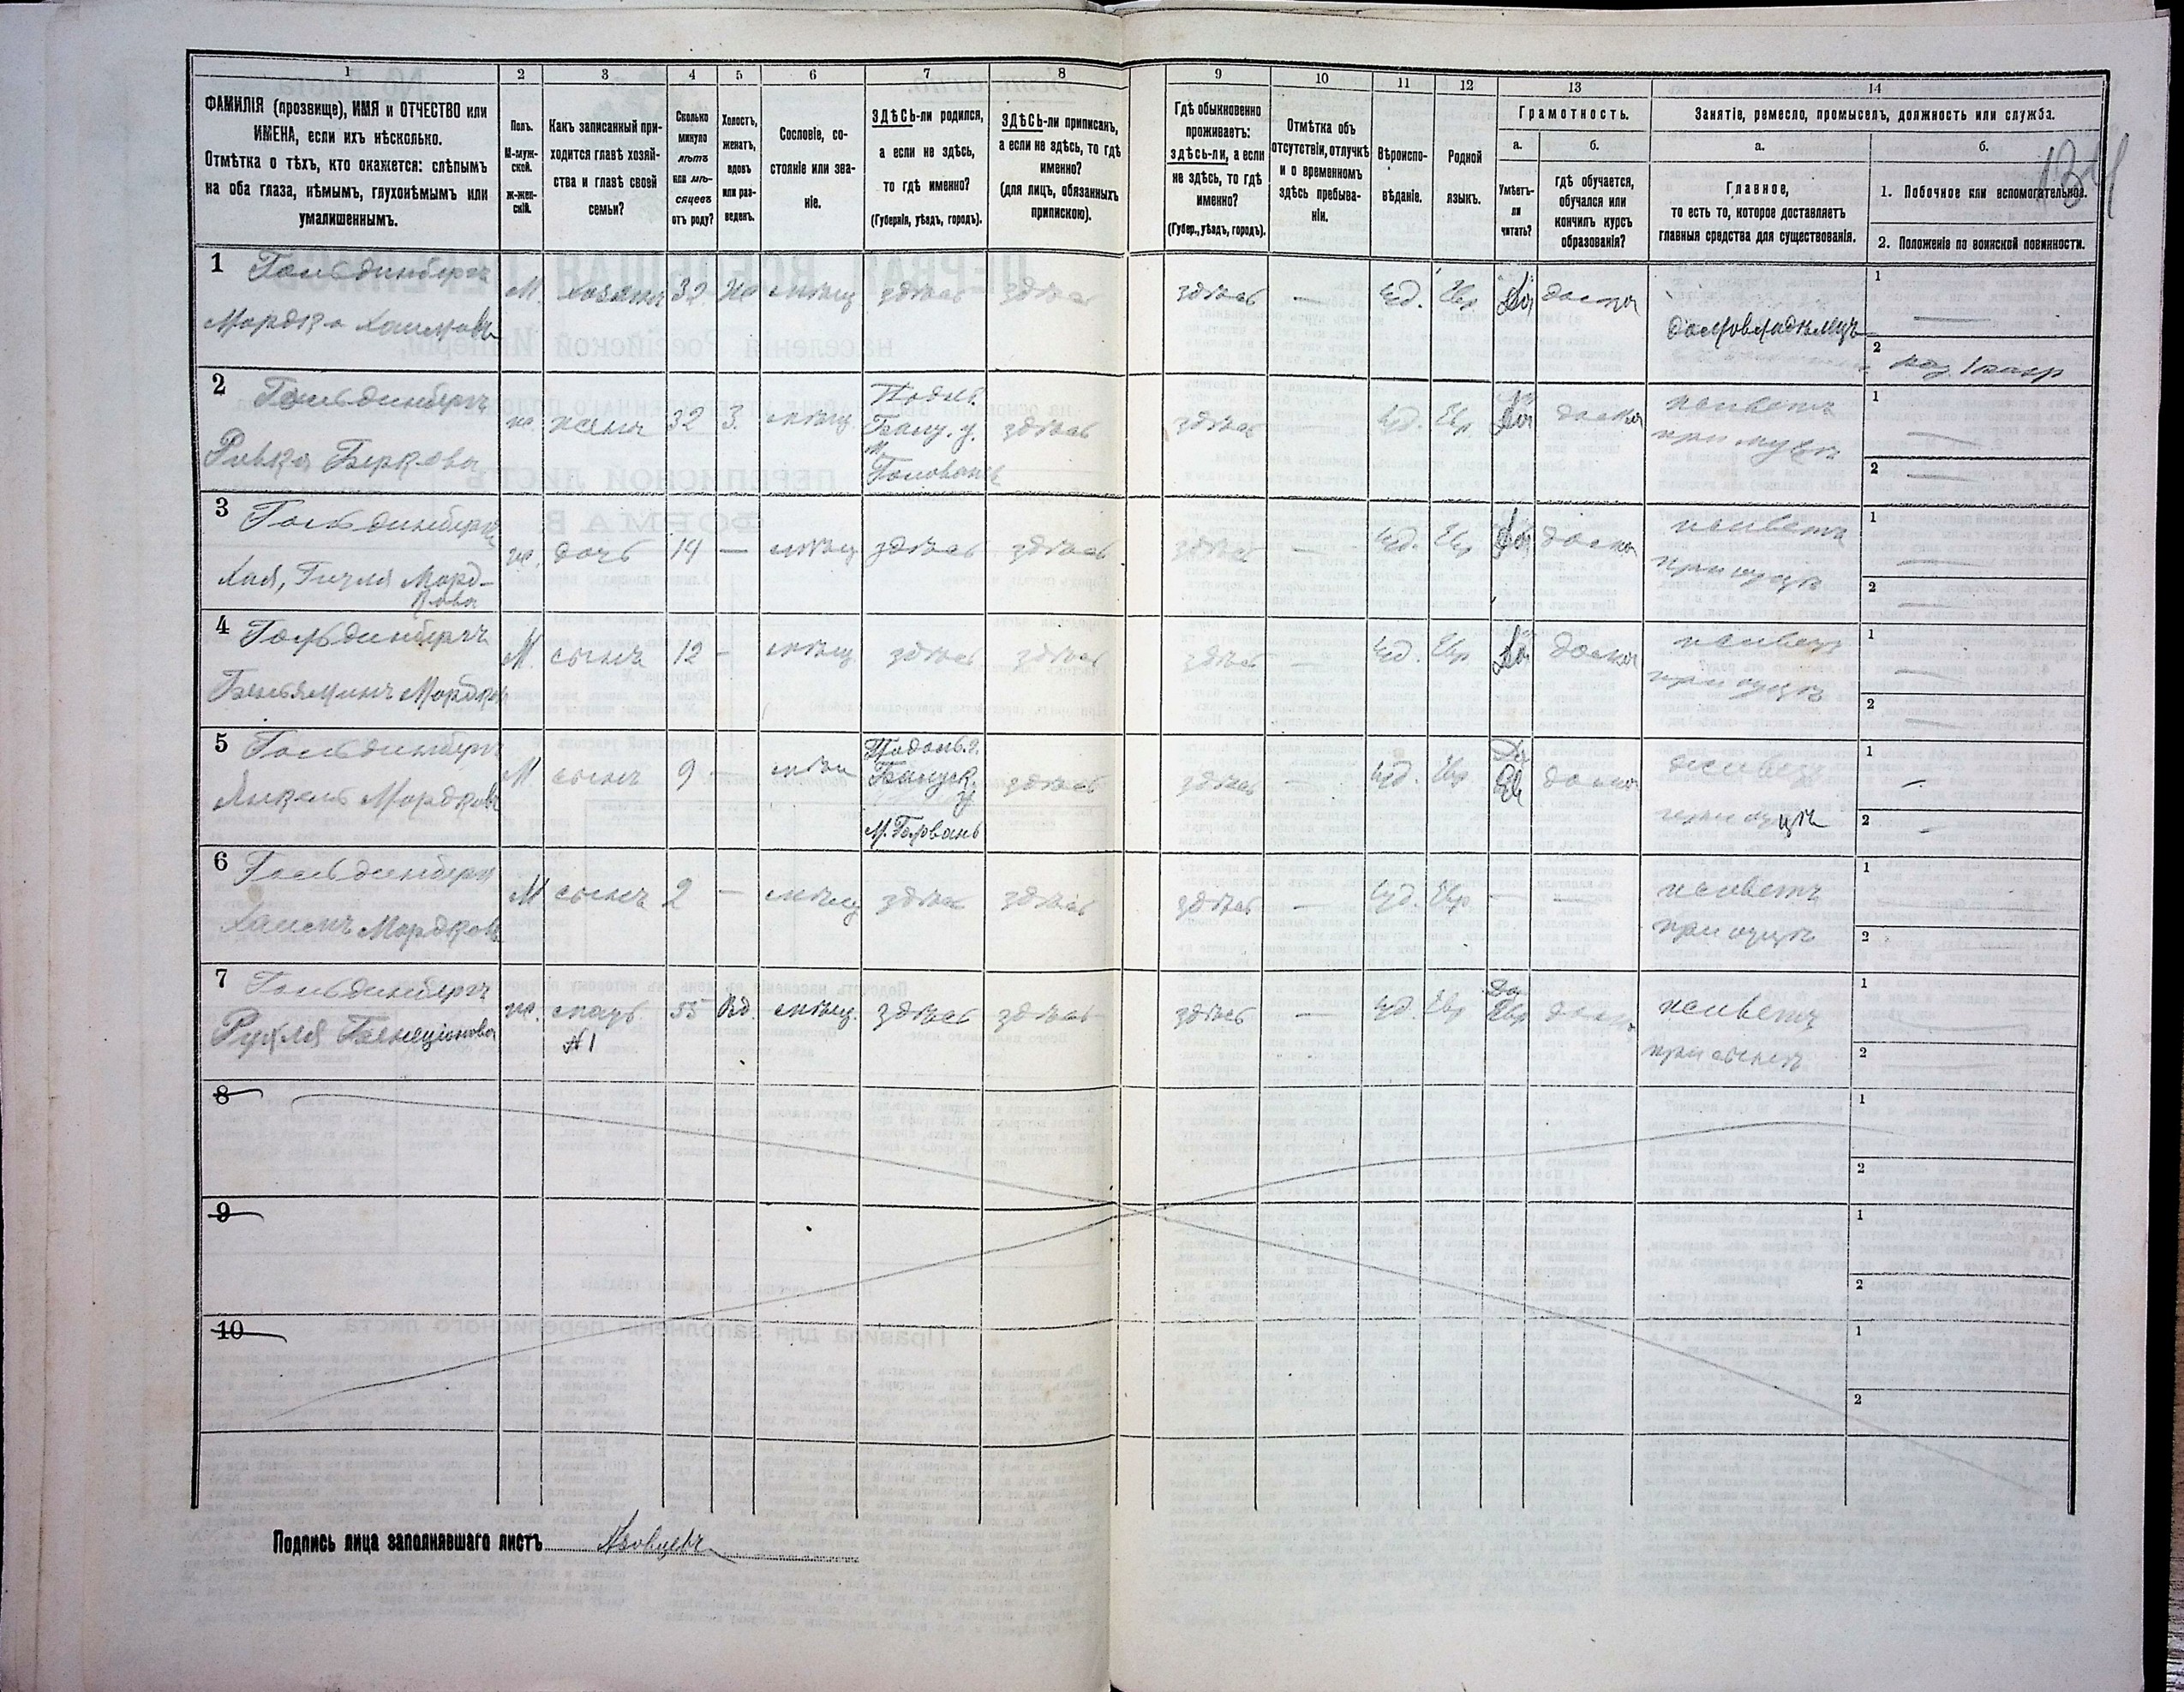 1 2 3 4 5 6 7 8 9 10 11 12 13 14
ФАМИЛІЯ (прозвище), ИМЯ и ОТЧЕСТВО или
ИМЕНА, если ихъ нѣсколько.
Отмѣтка о тѣхъ, кто окажется: слѣпымъ
на оба глаза, нѣмымъ, глухонѣмымъ или
умалишеннымъ.
Полъ.
М-муж-
ской.
ж-жен-
скій.
Какъ записанный при-
ходится главѣ хозяй-
ства и главѣ своей
семьи?
Сколько
минуло
лѣтъ
или мѣ-
сяцевъ
отъ роду?
Холостъ,
женатъ,
вдовъ
или раз-
веденъ.
Сословіе, со-
стояніе или зва-
ніе.
ЗДѢСЬ-ли родился,
а если не здѣсь,
то гдѣ именно?
(Губернія, уѣздъ, городъ).
ЗДѢСЬ-ли приписанъ,
а если не здѣсь, то гдѣ
именно?
(для лицъ, обязанныхъ
припискою).
Гдѣ обыкновенно
проживаетъ:
здѣсь-ли, а если
не здѣсь, то гдѣ
именно?
(Губер., уѣздъ, городъ).
Отмѣтка объ
отсутствіи, отлучкѣ
и о временномъ
здѣсь пребыва-
ніи.
Вѣроиспо-
вѣданіе.
Родной
языкъ.
Грамотность.
а.
Умѣетъ-
ли
читать?
б.
гдѣ обучается,
обучался или
кончилъ курсъ
образованія?
Занятіе, ремесло, промыселъ, должность или служба.
а.
Главное,
то есть то, которое доставляетъ
главныя средства для существованія.
б.
1. Побочное или вспомогательное.
2. Положеніе по воинской повинности.
134
1 Гольдинберг
Мордко Хаимовъ
М. хозяинъ 32 Же мѣщ здѣсь здѣсь здѣсь — Іуд. Евр Да дома
домовладѣлецъ
1 —
2
2 Гольдинбергъ
Ривка Беркова
ж. жена 32 З. мѣщ.
Подоль.
м. Голованъ
здѣсь здѣсь Іуд. Евр. дома
живетъ
при мужѣ
1 —
2 —
3 Гольдинберг
Хая, Гитля Морд-
кова
ж. дочь 14 — мѣщ здѣсь здѣсь здѣсь — Іуд. Евр дома
живетъ
при отцѣ
1 —
2 —
4 Гольдинбергъ
Беньяминъ Мордков
М. сынъ 12 - мѣщ. здѣсь здѣсь здѣсь — Іуд. Евр. дома
живет
при отцѣ
1 —
2 —
5 Гольдинберг
Янкель Мордковъ
М сынъ 9 — мѣщ
Подоль. г.
м. Головань
здѣсь здѣсь — Іуд. Евр. Да дома
живетъ
при отцѣ
1 —
2 —
6 Гольдинберг
Хаимъ Мордковъ
М сынъ 2 — мѣщ здѣсь здѣсь здѣсь — Іуд. Евр. — —
живетъ
при отцѣ
1
2
7 Гольдинбергъ
Рухля Бенціонова
ж. мать 55 Вд. мѣщ. здѣсь здѣсь здѣсь — Іуд. Евр Да дома
№ 1
живетъ
при сынѣ
1
2
8
1
2
9
1
2
10
1
2
Подпись лица заполнявшаго листъ